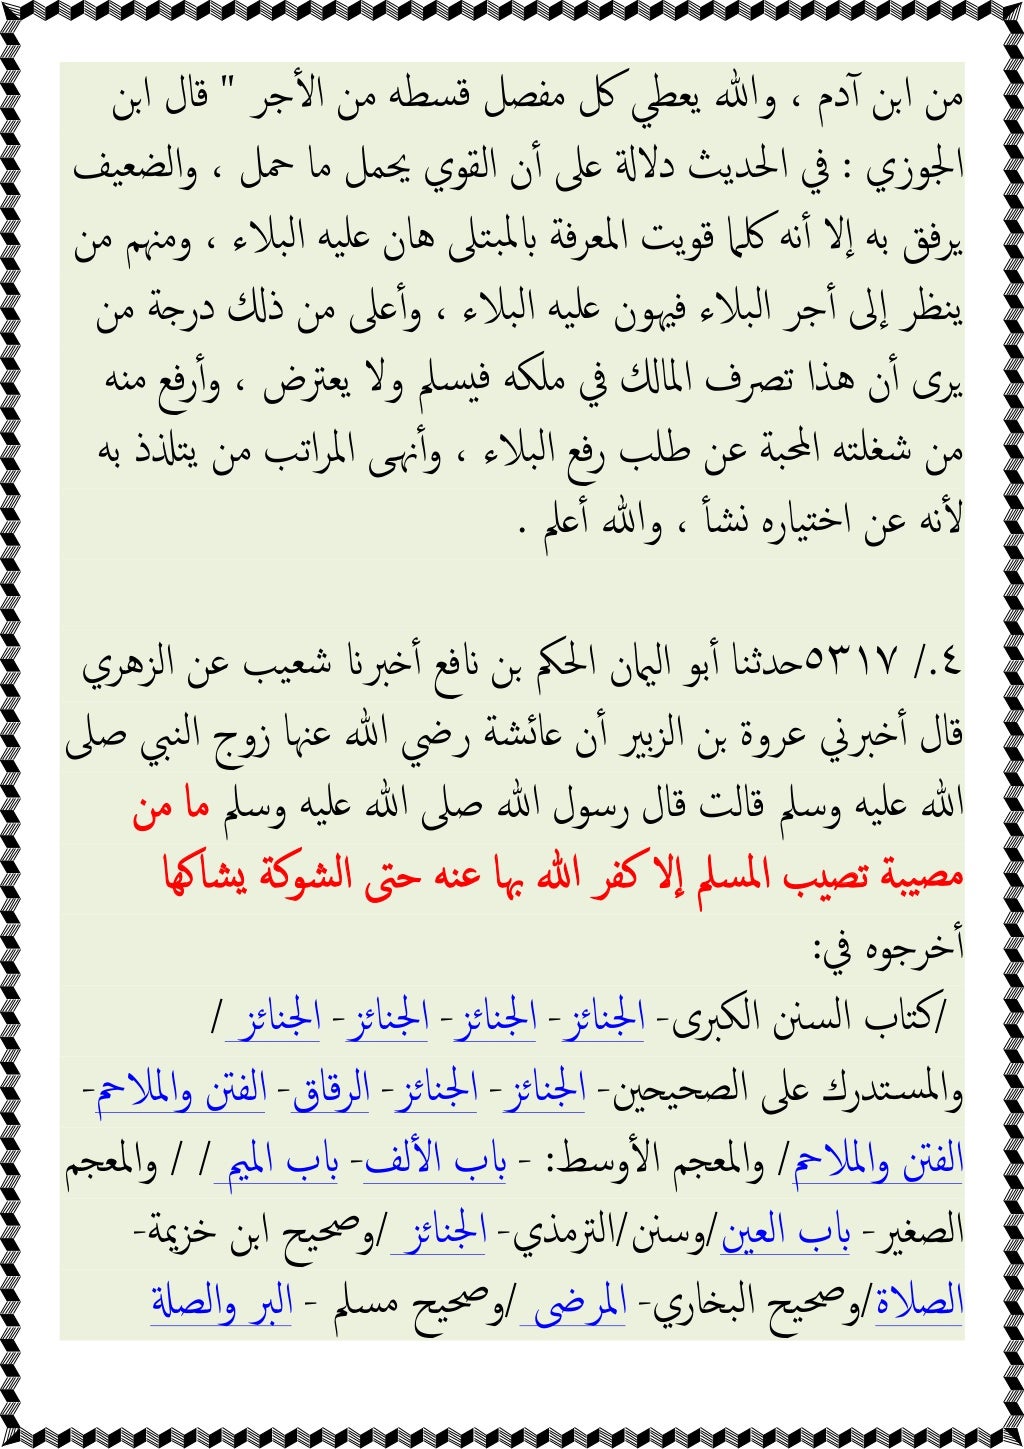 من ابن آدم ، والله يعطي كل مفصل قسطه من الأجر " قال ابن
الجوزي : في الحديث دلالة على أن القوي يحمل ما حمل ، والضعيف
يرفق به إلا أنه كلما قويت المعرفة بالمبتلى هان عليه البلاء ، ومنهم من
ينظر إلى أجر البلاء فيهون عليه البلاء ، وأعلى من ذلك درجة من
يرى أن هذا تصرف المالك في ملكه فيسلم ولا يعترض ، وأرفع منه
من شغلته المحبة عن طلب رفع البلاء ، وأنهى المراتب من يتلذذ به
لأنه عن اختياره نشأ ، والله أعلم .
٤./ ٥٣١٧حدثنا أبو اليمان الحكم بن نافع أخبرنا شعيب عن الزهري
قال أخبرني عروة بن الزبير أن عائشة رضي الله عنها زوج النبي صلى
الله عليه وسلم قالت قال رسول الله صلى الله عليه وسلم ما من
مصيبة تصيب المسلم إلا كفر الله بها عنه حتى الشوكة يشاكها
أخرجوه في:
/كتاب السنن الكبرى- الجنائز- الجنائز- الجنائز- الجنائز /
والمستدرك على الصحيحين- الجنائز- الجنائز- الرقاق- الفتن والملاحم-
الفتن والملاحم/ والمعجم الأوسط: - باب الألف- باب الميم / / والمعجم
الصغير- باب العين/وسنن/الترمذي- الجنائز /وصحيح ابن خزيمة-
الصلاة/وصحيح البخاري- المرضى /وصحيح مسلم - البر والصلة